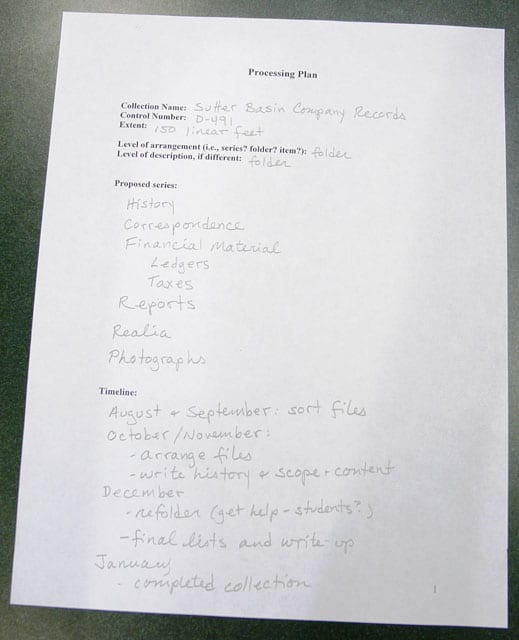 Processing Plan
Collection Name: Sutter Basin Company Records
Control Number: D-491
Extent: 150 linear feet
Level of arrangement (i.e., series? folder? item?): folder
Level of description, if different: folder
Proposed series:
History
Correspondence
Financial Material
Ledgers
Taxes
Reports
Realia
Photographs
Timeline:
August + September: sort files
October/November:
- arrange files
- write history + scope + content
December
- refolder (get help - students?)
- final lists and write-up
January
- completed collection
1